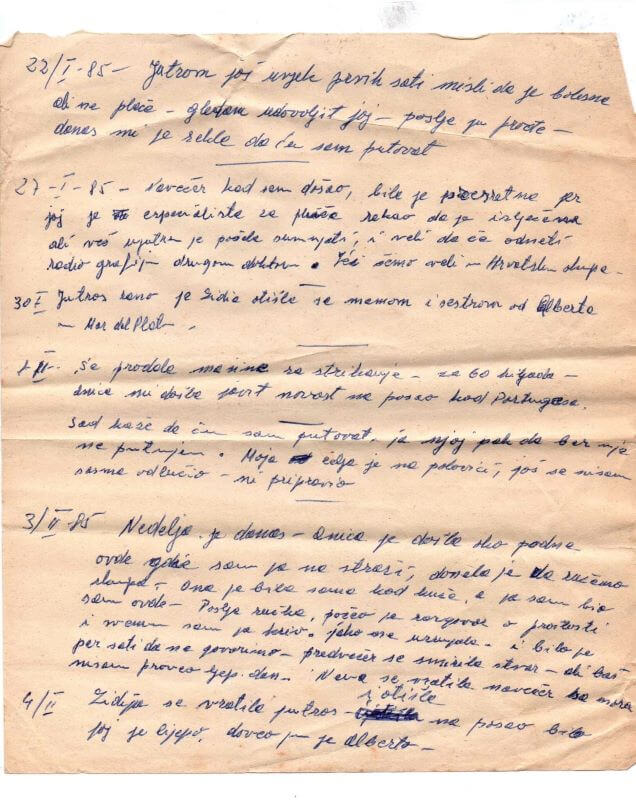 22/I-85 - Jutrom još uvjek prvih sati misli da je bolesna
ali ne plače - gledam udovoljit joj - poslje ju prođe -
danas mi je rekla da ću sam putovat
27-I-85 - Navečer kad sam došao, bila je presretna jer
joj je especialista za pluća rekao da je izlječena
ali već ujutro je počela sumnjati, i veli da će odneti
radiografiju drugom doktoru. Ići ćemo veli u Hrvatsku skupa -
30 I Jutros rano je Lidia otišla se mamom i sestrom od Alberta
u Mar del Plat
II- Se prodala mašina za štrikanje - za 60 hiljada -
Anica mi došla javit novost na posao kod Portugesa.
Sad kaže da ću sam putovat, ja njoj pak da bez nje
ne putujem. Moja želja je na polovici, još se nisam
sasma odlučio - ni pripravio
3/II-85 Nedelja je danas - Anica je došla oko podne
ovde gdje sam ja na straži, donela je da ručamo
skupa. Ona je bila sama kod kuće, a ja sam bio
sam ovde - Poslje ručka, počeo je razgovor o prošlosti
i svemu sam ja kriv. jako me uzrujala - i bilo je
par sati da ne govorimo - predvečer se smirila stvar - ali baš
nisam proveo ljep dan. Neva se vratila navečer sa mora
4/II Lidija se vratila jutros - i otišla na posao bilo
joj je lijepo, doveo ju je Alberto -